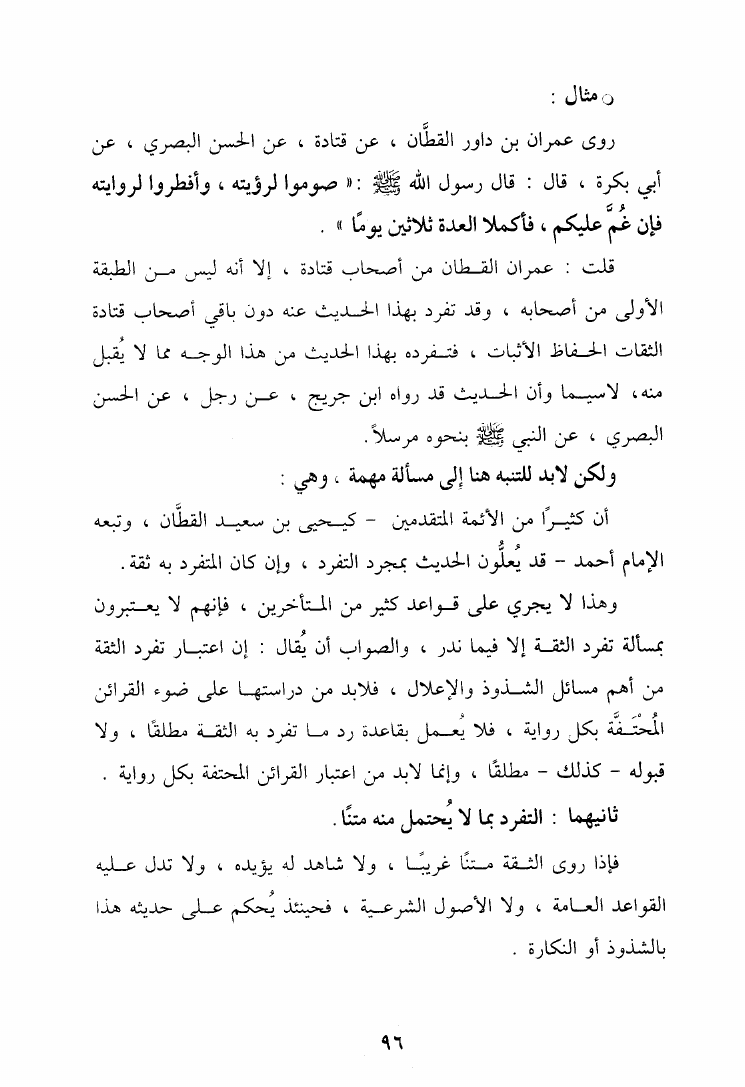 ○ مثال :
روى عمران بن داور القطَّان ، عن قتادة ، عن الحسن البصري ، عن
أبي بكرة ، قال : قال رسول الله ﷺ :« صوموا لرؤيته ، وأفطروا لروايته
فإن غُمَّ عليكم ، فأكملا العدة ثلاثين يومًا » .
قلت : عمران القطان من أصحاب قتادة ، إلا أنه ليس من الطبقة
الأولى من أصحابه ، وقد تفرد بهذا الحديث عنه دون باقي أصحاب قتادة
الثقات الحفاظ الأثبات ، فتفرده بهذا الحديث من هذا الوجه مما لا يُقبل
منه، لاسيما وأن الحديث قد رواه ابن جريج ، عن رجل ، عن الحسن
البصري ، عن النبي ﷺ بنحوه مرسلاً.
ولكن لابد للتنبه هنا إلى مسألة مهمة ، وهي :
أن كثيرًا من الأئمة المتقدمين – كيحيى بن سعيد القطَّان ، وتبعه
الإمام أحمد – قد يُعلُّون الحديث بمجرد التفرد ، وإن كان المتفرد به ثقة .
وهذا لا يجري على قواعد كثير من المتأخرين ، فإنهم لا يعتبرون
بمسألة تفرد الثقة إلا فيما ندر ، والصواب أن يُقال : إن اعتبار تفرد الثقة
من أهم مسائل الشذوذ والإعلال ، فلابد من دراستها على ضوء القرائن
المُحْتَفَّة بكل رواية ، فلا يُعمل بقاعدة رد ما تفرد به الثقة مطلقًا ، ولا
قبوله – كذلك – مطلقًا ، وإنما لابد من اعتبار القرائن المحتفة بكل رواية .
ثانيهما : التفرد بما لا يُحتمل منه متنًا .
فإذا روى الثقة متنًا غريبًا ، ولا شاهد له يؤيده ، ولا تدل عليه
القواعد العامة ، ولا الأصول الشرعية ، فحينئذ يُحكم على حديثه هذا
بالشذوذ أو النكارة .
٩٦